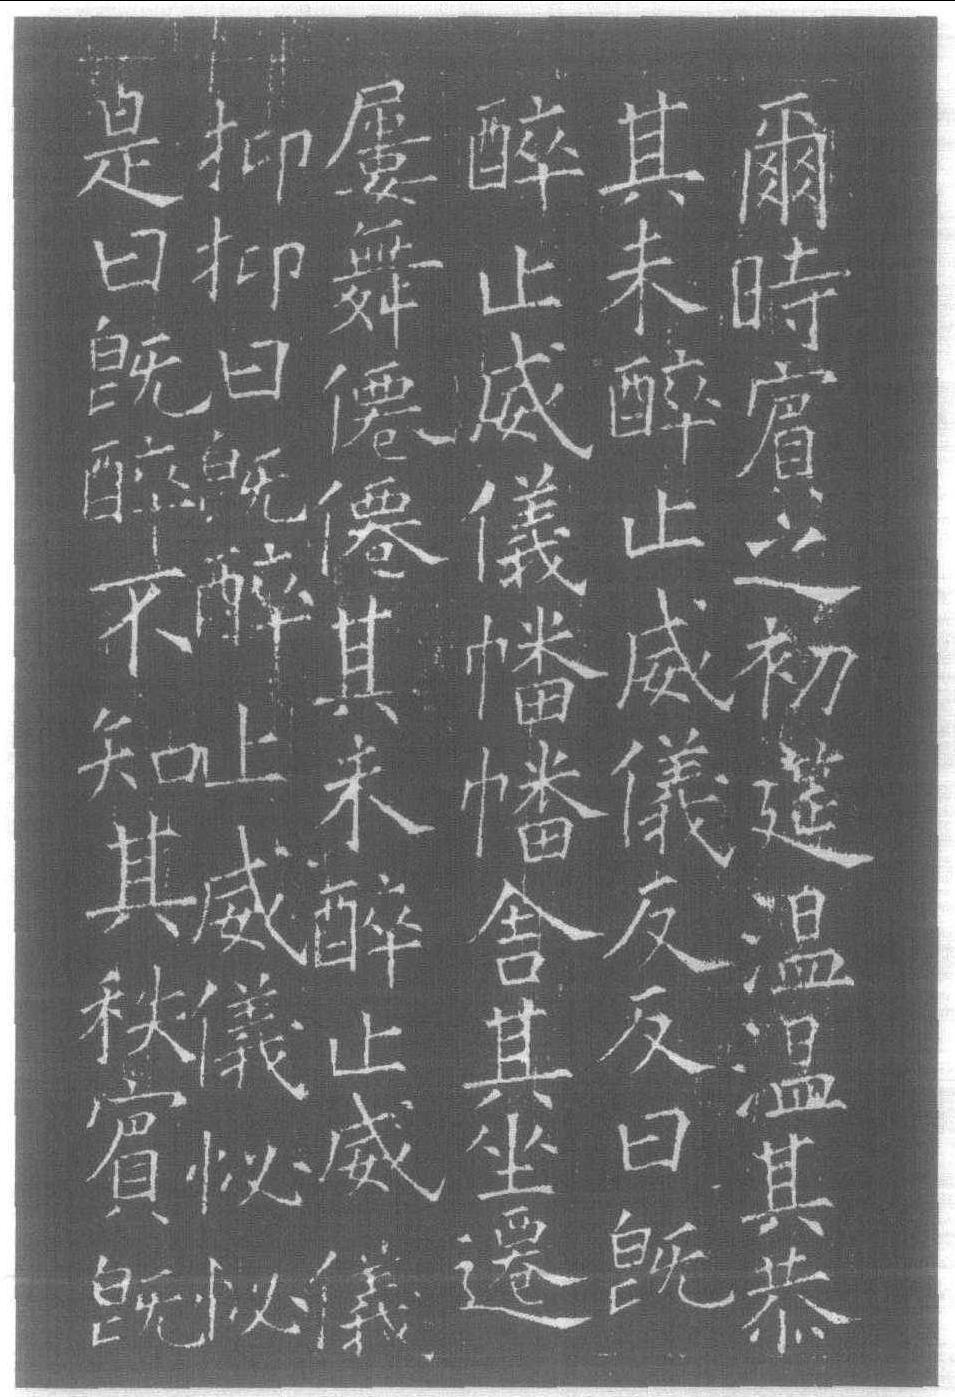 爾時賓之初筵温温其恭
其未醉止威儀反反曰既
醉止威儀幡幡舍其坐遷
屢舞僊僊其未醉止威儀
抑抑曰既醉止威儀怭怭
是曰既醉不知其秩賓既